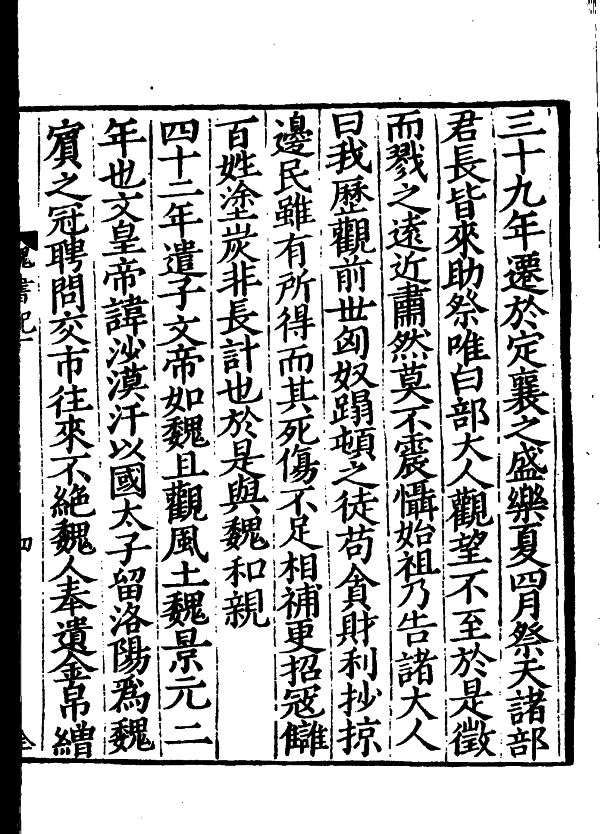 三十九年遷於定襄之盛樂夏四月祭天諸部
君長皆來助祭唯白部大人觀望不至於是徵
而戮之遠近肅然莫不震懾始祖乃告諸大人
曰我歷觀前世匈奴蹋頓之徒苟貪財利抄掠
邊民雖有所得而其死傷不足相補更招寇讎
百姓塗炭非長計也於是與魏和親
四十二年遣子文帝如魏且觀風土魏景元二
年也文皇帝諱沙漠汗以國太子留洛陽爲魏
賔之冠聘問交市往來不絕魏人奉遺金帛繒
魏書紀一
四